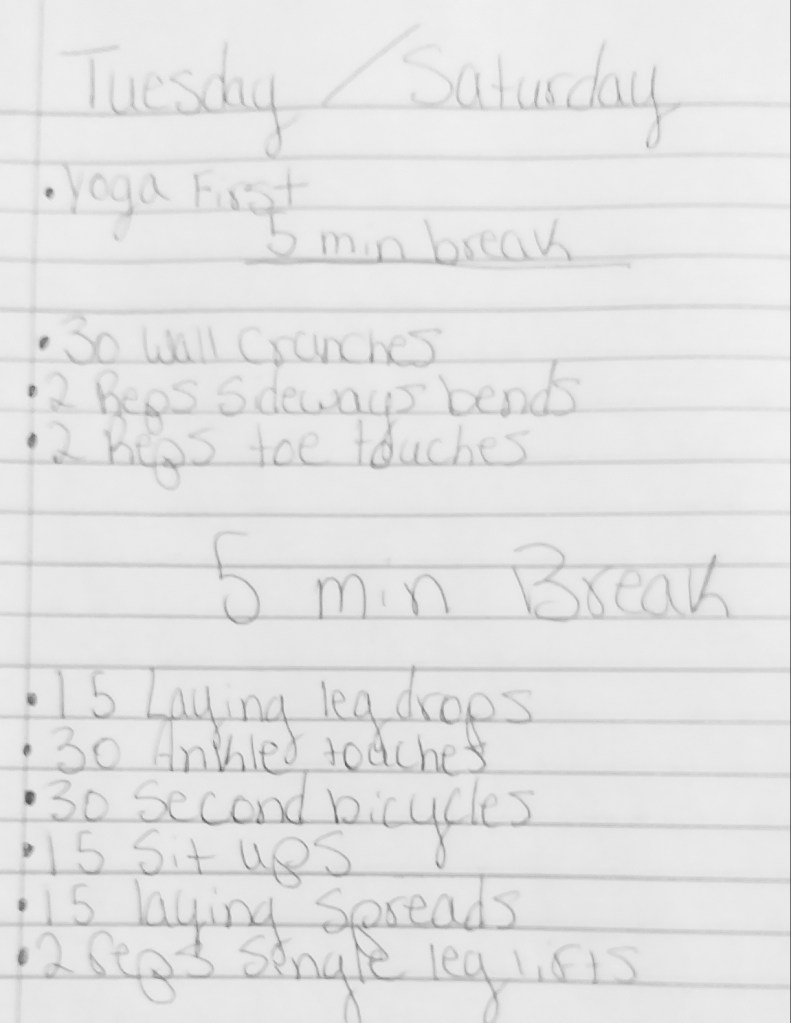 Tuesday / Saturday
• Yoga First
5 min break
• 30 Wall Crunches
• 2 Reps Sideways bends
• 2 Reps toe touches
5 min Break
• 15 Laying leg drops
• 30 Ankles touches
• 30 Second bicycles
• 15 Sit ups
• 15 laying Spreads
• 2 Reps Single leg lifts